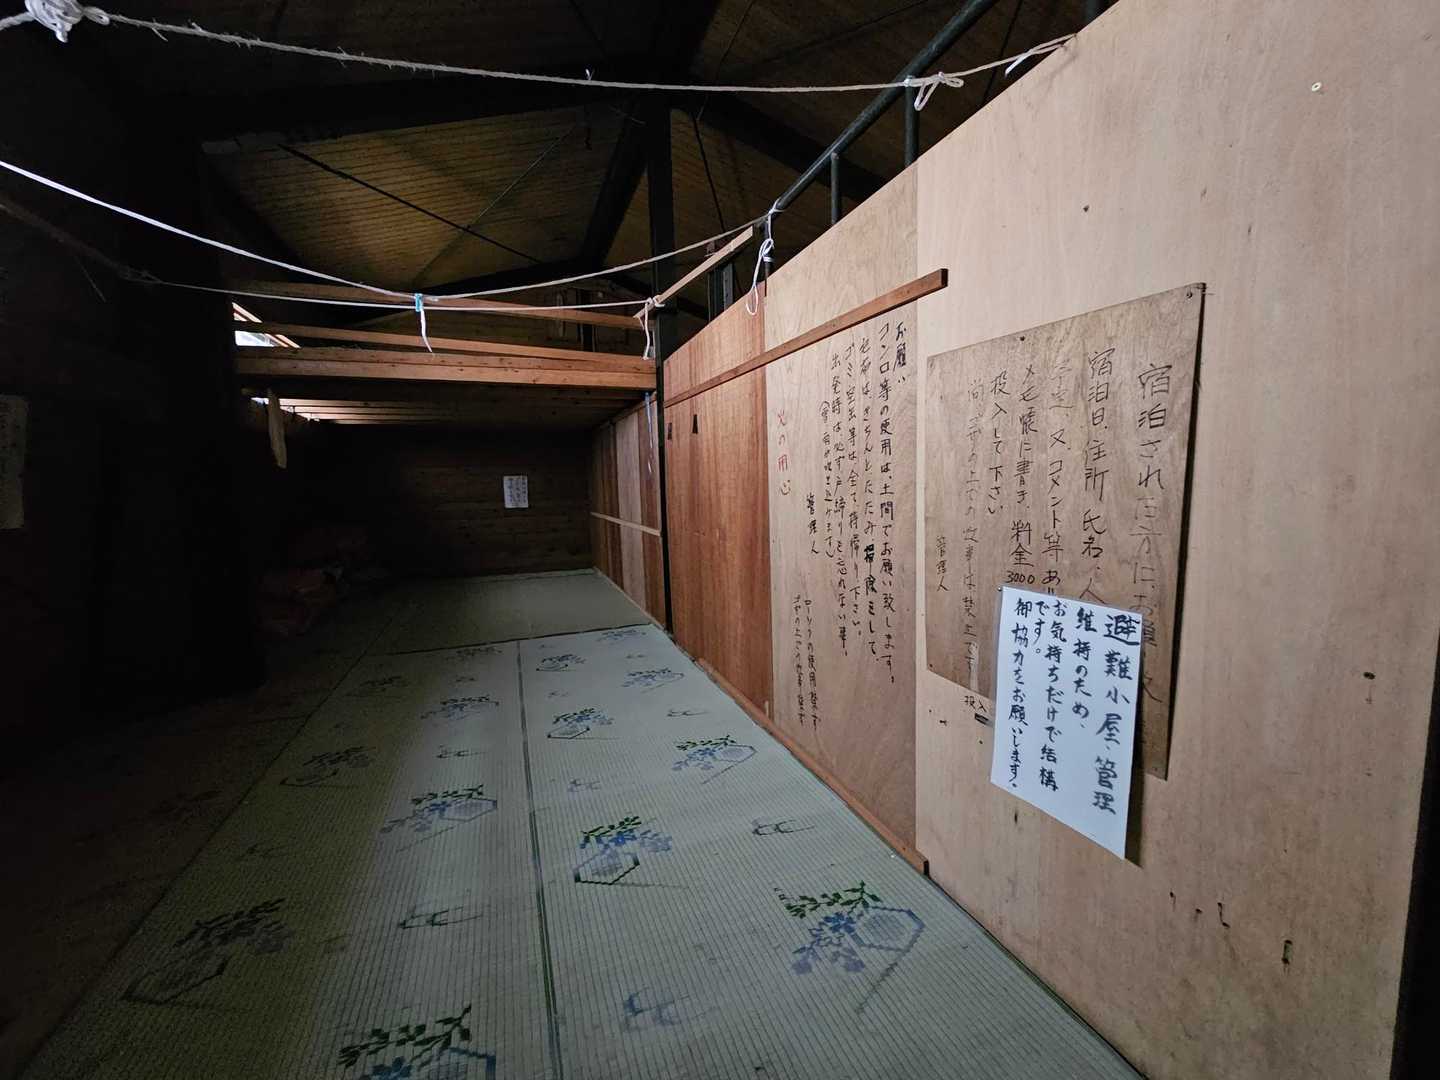 宿泊された方にお願い
宿泊日、住所、氏名、人
又、コメント等あ
メモ帳に書き、料金
3000
投入して下さい
尚、ゴザの上での炊事は禁止です
管理人
投入
避難小屋、管理
維持のため、
お気持ちだけで結構
です。
御協力をお願いします。
お願い
コンロ等の使用は、土間でお願い致します。
毛布は、きちんとたたみ掃除をして、
ゴミ空缶等は全て持帰り下さい。
出発時は、必ず戸締りを忘れない事。
(雪、雨が吹き込みます)
管理人
ローソクの使用禁ず
ゴザの上での炊事禁ず
火の用心